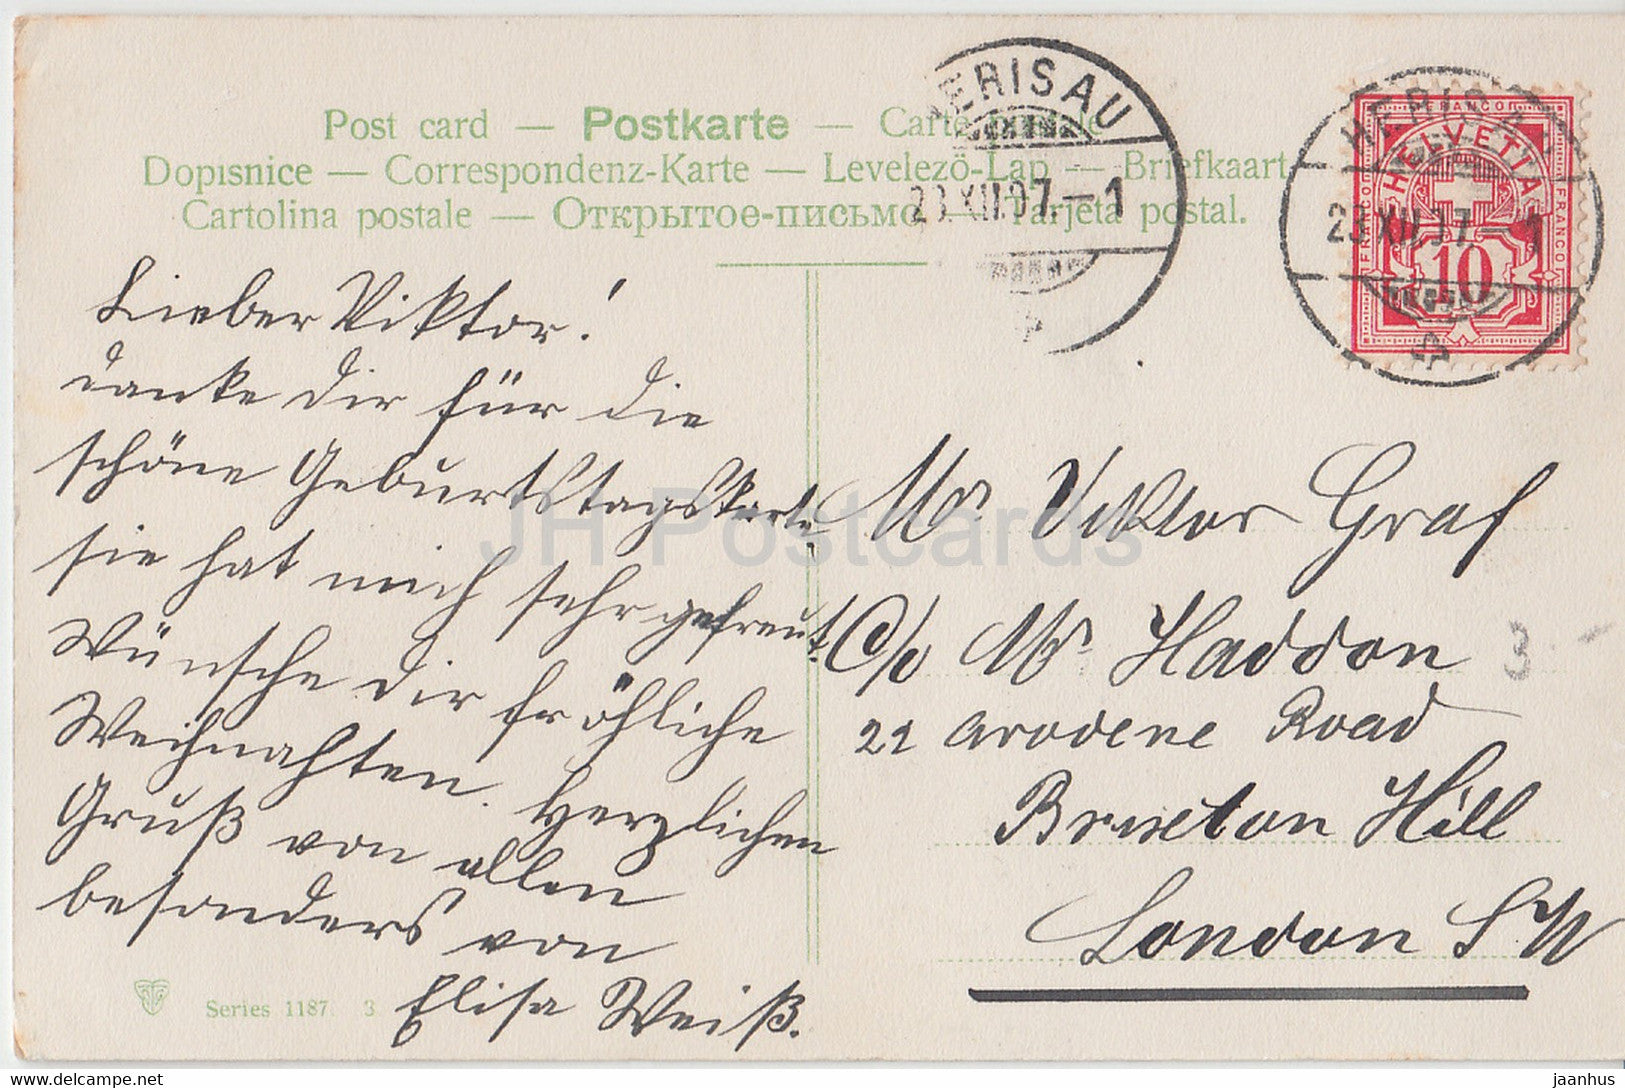 Post card — Postkarte — Carte postale
Dopisnice — Correspondenz-Karte — Levelezö-Lap — Briefkaart
Cartolina postale — Открытое-письмо — Tarjeta postal.
HERISAU
23.XII.07.—1
HERISAU
23.XII.07.—1
FRANCO
HELVETIA
FRANCO
FRANCO
10
Lieber Viktor!
danke dir für die
schöne Geburtstagskarte
sie hat mich sehr gefreut.
Wünsche dir fröhliche
Weihnachten. Herzlichen
Gruß von allen
besonders von
Elisa Weiß.
Mr Viktor Graf
C/o Mr Haddon
22 Arodene Road
Brixton Hill
London SW
3
Series 1187. 3
JH Postcards
delcampe.net
jaanhus